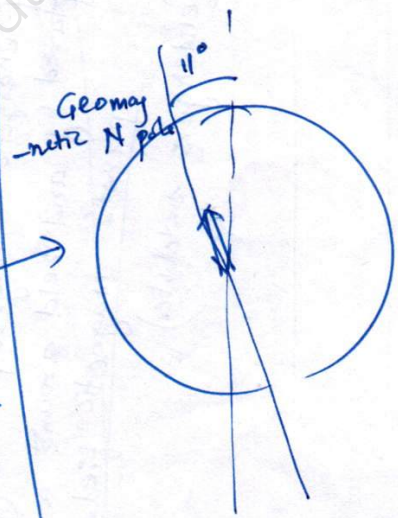 11°
Geomag
-netic N pole